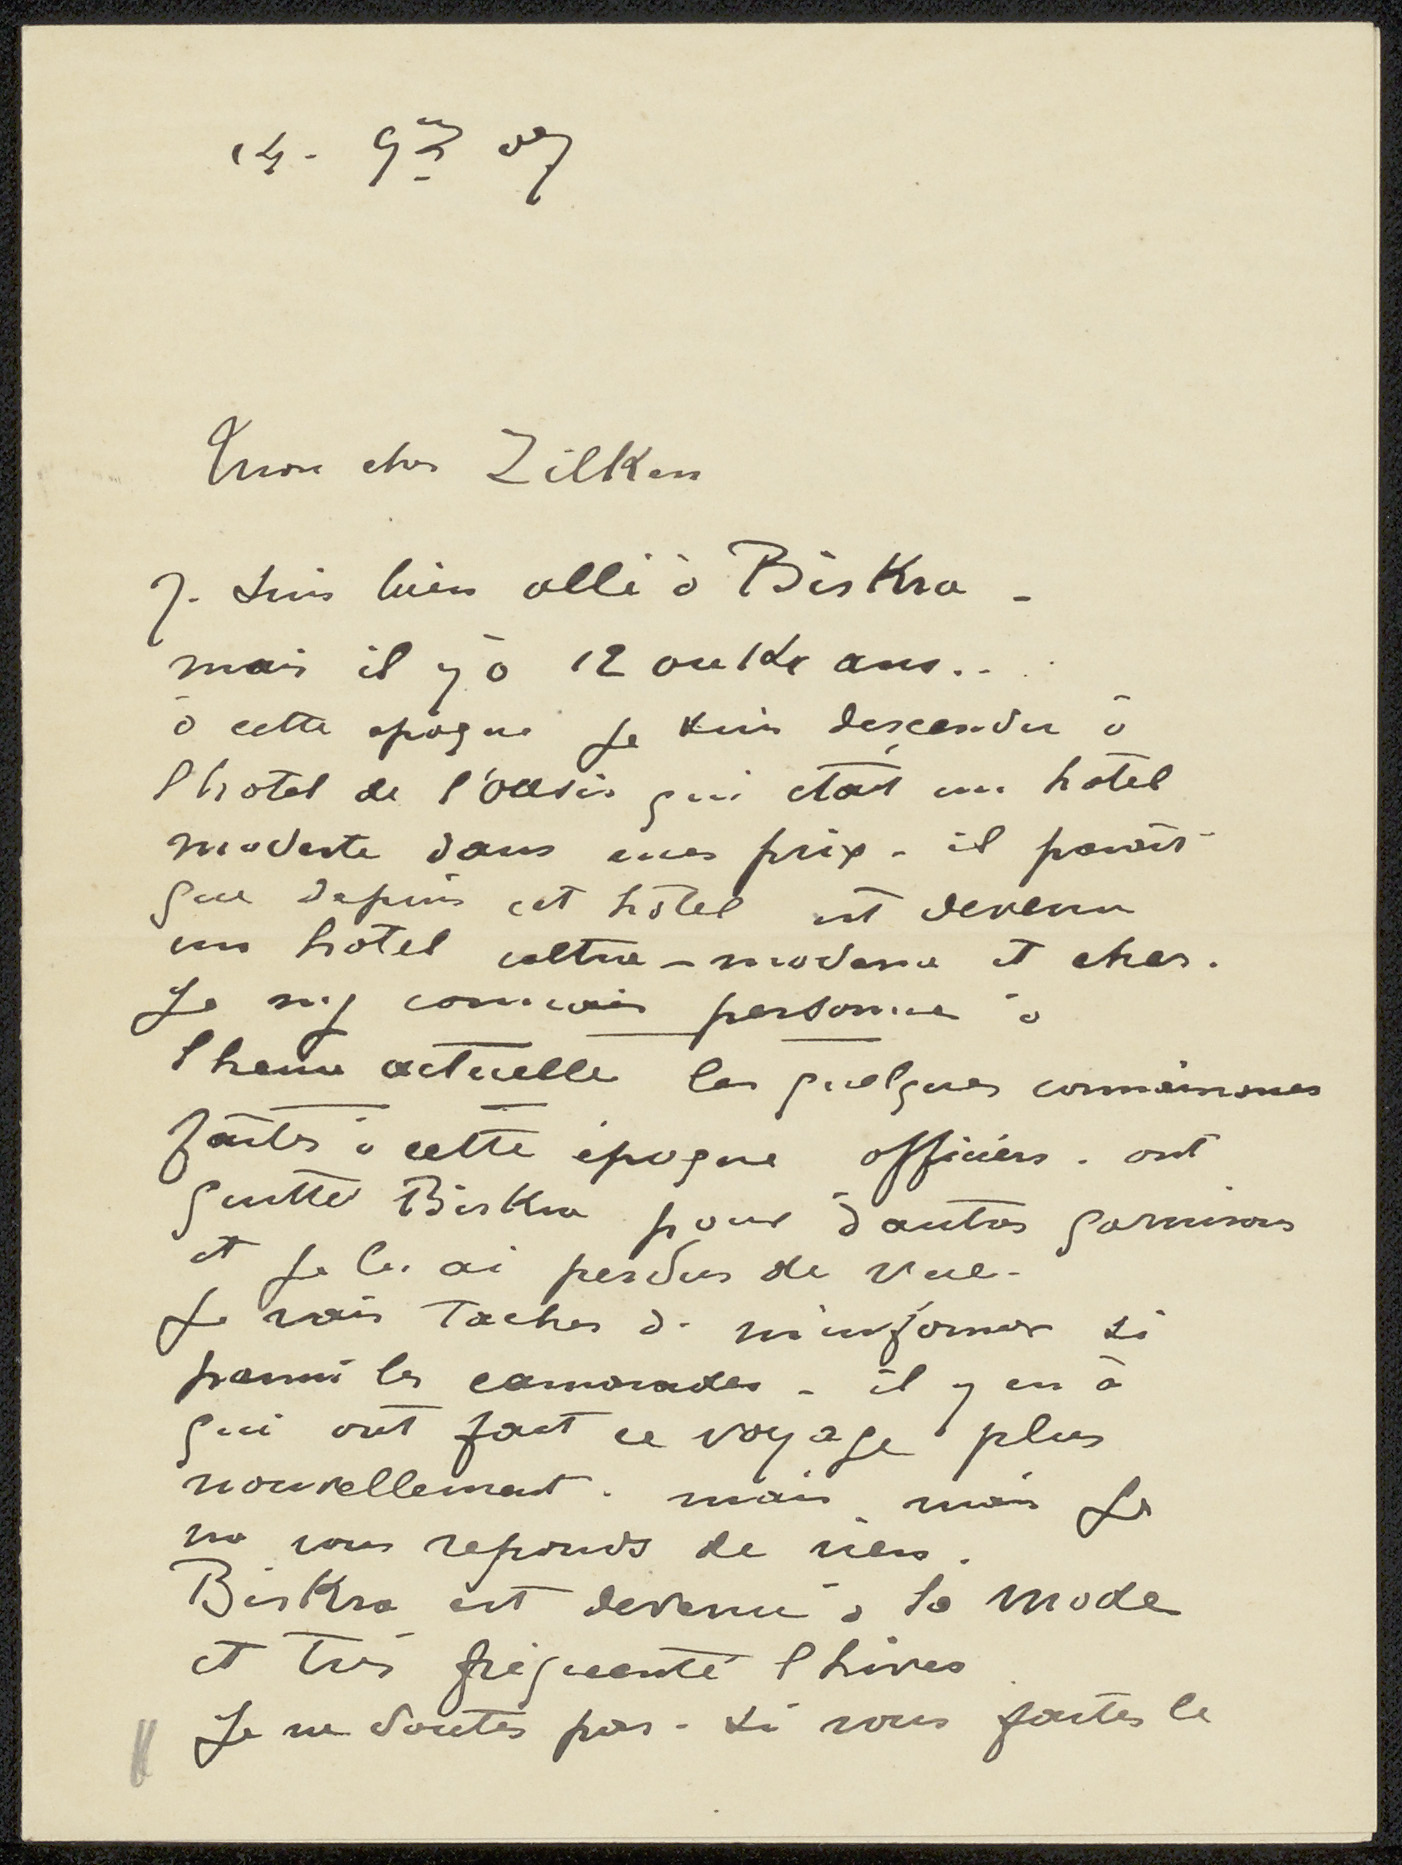 14. 9bre 07
Mon cher Zilken
J. suis bien allé à Biskra -
mais il y à 12 ou 14 ans..
à cette epoque je suis descendu à
l'hotel de l'Oasis qui etait un hôtel
modeste dans mes prix - il parait
que depuis cet hôtel est devenu
un hotel ultra-moderne et cher.
Je n'y connais personne à
l'heure actuelle les quelques connaissances
faites à cette époque officiers. ont
quitté Biskra pour d'autres garnisons
et je les ai perdus de vue.
Je vais tacher d. m'informer si
parmi les camarades - il y en à
qui ont fait ce voyage plus
nouvellement. mais mais je
ne vous reponds de rien.
Biskra est devenu à la mode
et très fréquenté l'hiver
Je ne doutes pas - si vous faites le